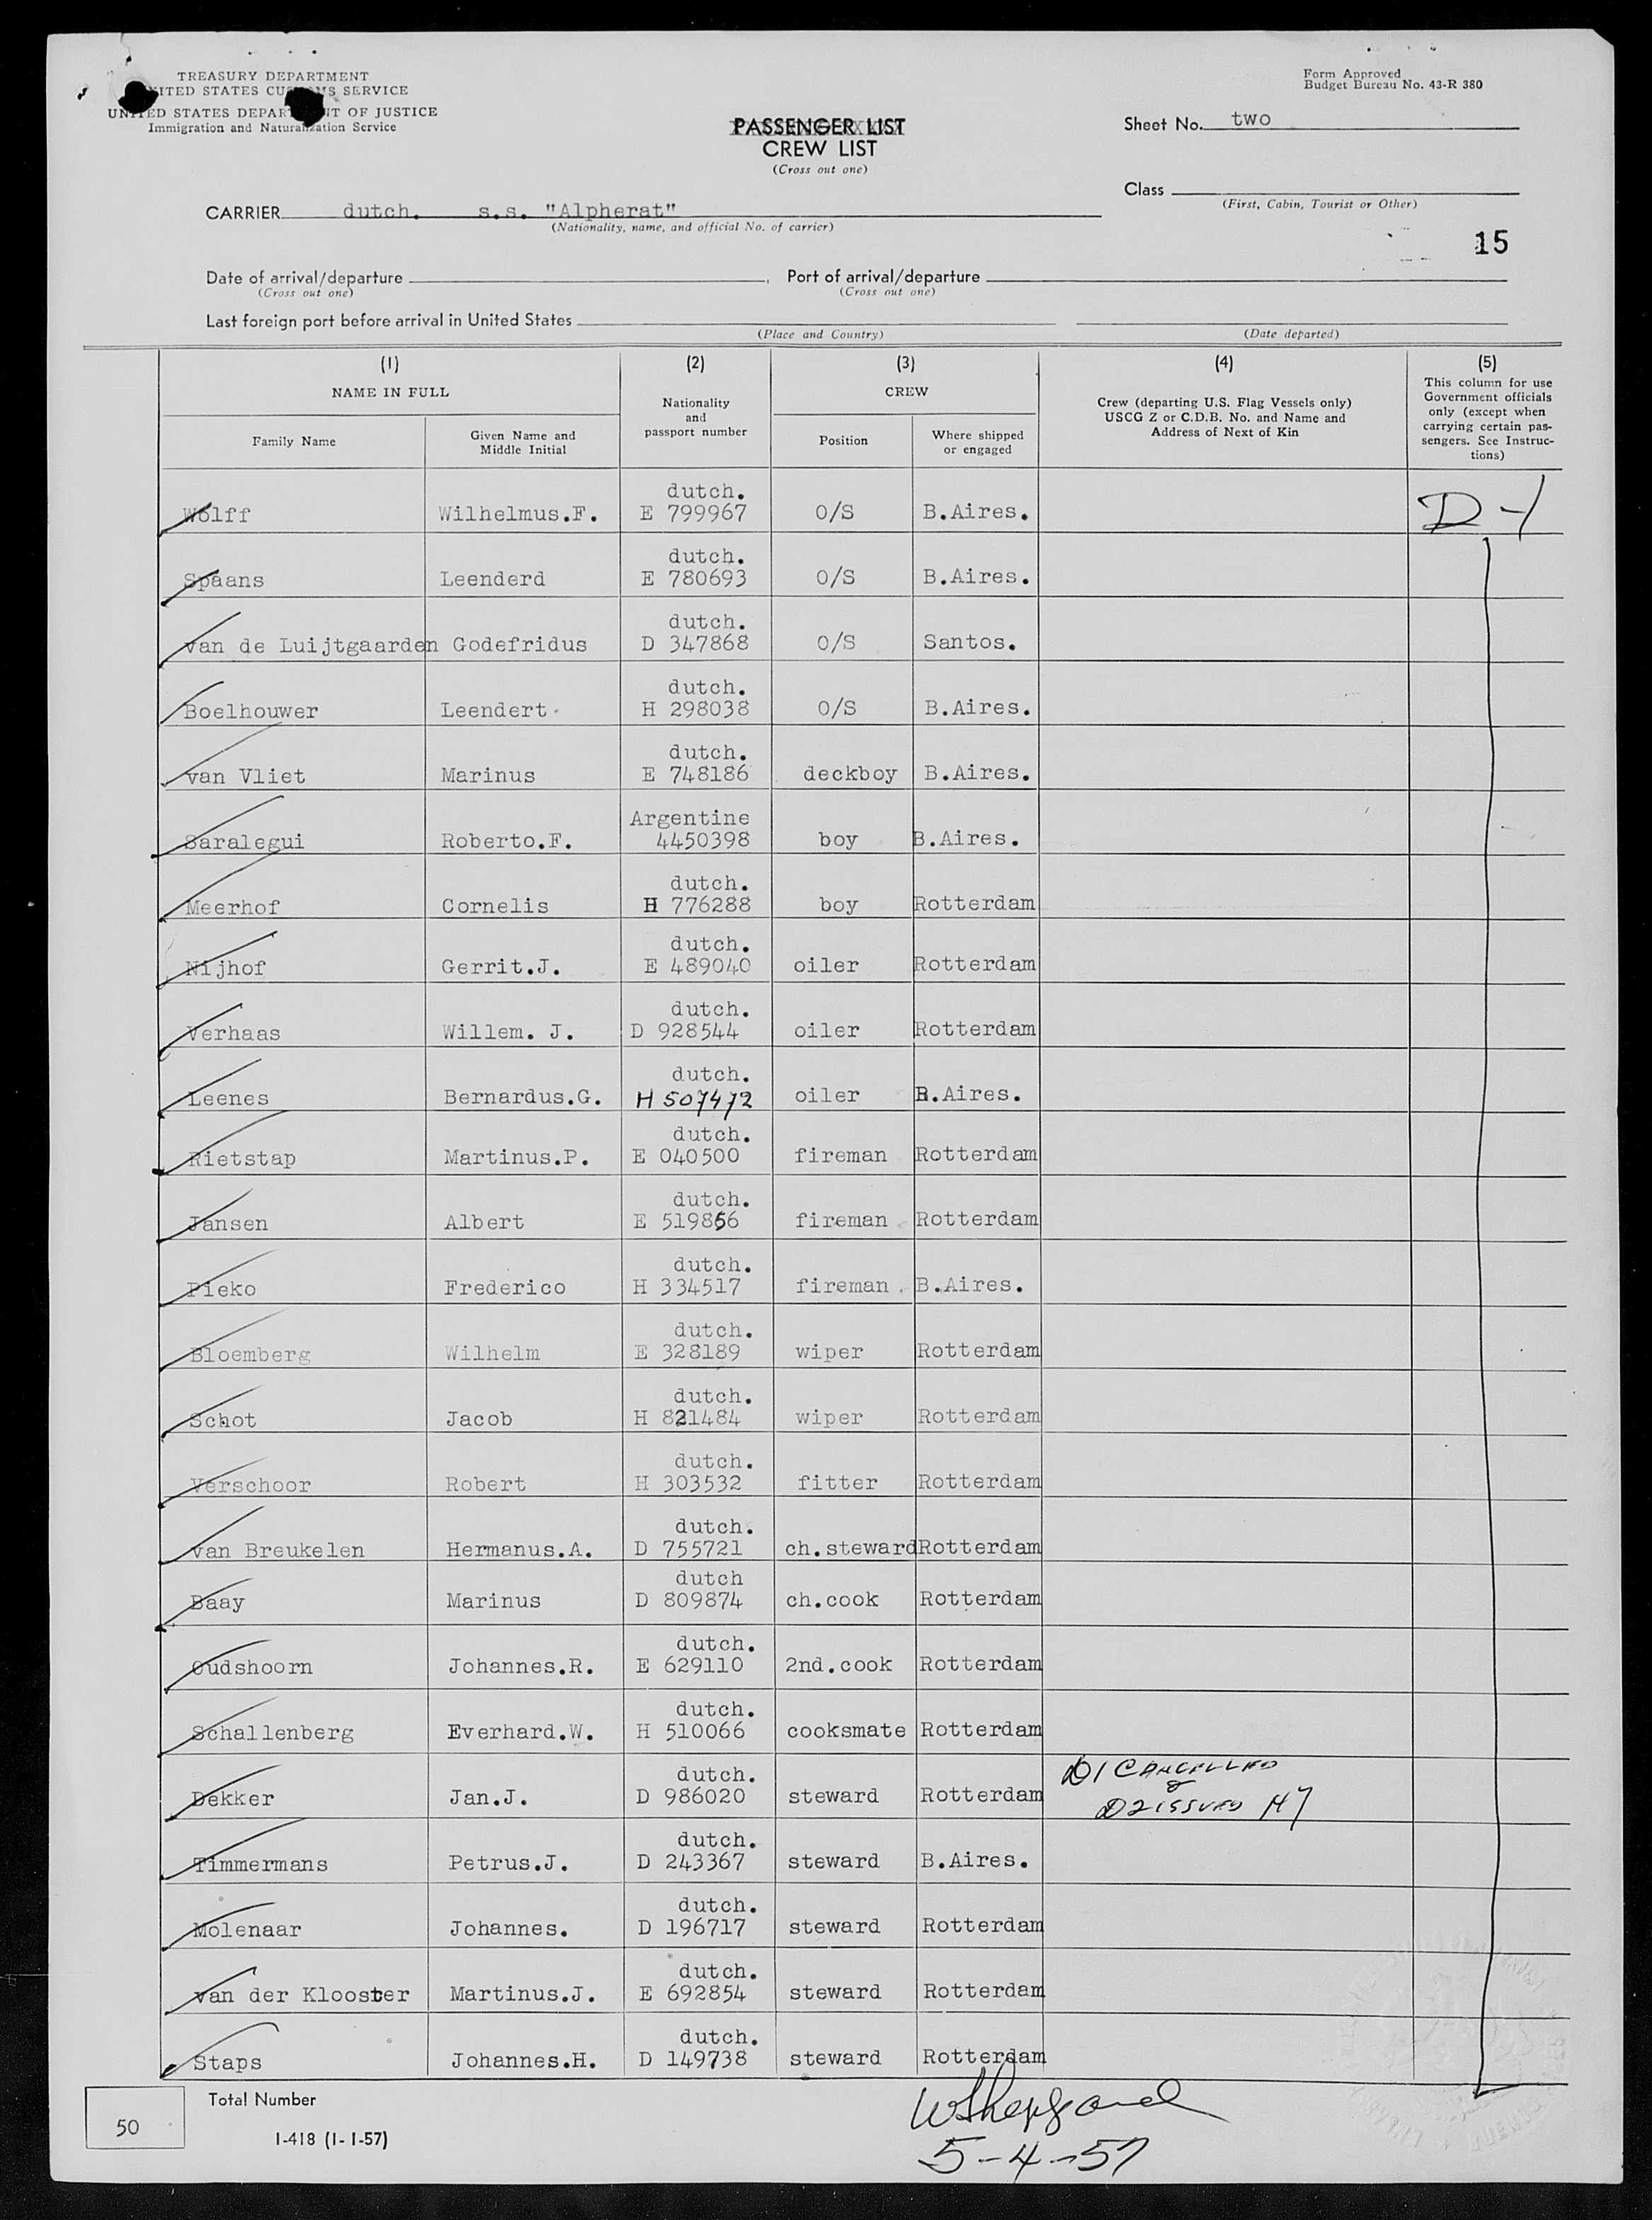 TREASURY DEPARTMENT
UNITED STATES CUSTOMS SERVICE
UNITED STATES DEPARTMENT OF JUSTICE
Immigration and Naturalization Service
Form Approved
Budget Bureau No. 43-R 380
PASSENGER LIST
CREW LIST
(Cross out one)
Sheet No. two
Class
(First, Cabin, Tourist or Other)
CARRIER dutch. s.s. "Alpherat"
(Nationality, name, and official No. of carrier)
15
Date of arrival/departure , Port of arrival/departure
(Cross out one) (Cross out one)
Last foreign port before arrival in United States
(Place and Country) (Date departed)
(1) (2) (3) (4) (5)
NAME IN FULL
Family Name
Given Name and
Middle Initial
Nationality
and
passport number
CREW
Position
Where shipped
or engaged
Crew (departing U.S. Flag Vessels only)
USCG Z or C.D.B. No. and Name and
Address of Next of Kin
This column for use
Government officials
only (except when
carrying certain pas-
sengers. See Instruc-
tions)
dutch.
Wolff Wilhelmus.F. E 799967 O/S B.Aires. D-1
dutch.
Spaans Leenderd E 780693 O/S B.Aires.
dutch.
van de Luijtgaarden Godefridus D 347868 O/S Santos.
dutch.
Boelhouwer Leendert. H 298038 O/S B.Aires.
dutch.
van Vliet Marinus E 748186 deckboy B.Aires.
Argentine
Saralegui Roberto.F. 4450398 boy B.Aires.
dutch.
Meerhof Cornelis H 776288 boy Rotterdam
dutch.
Nijhof Gerrit.J. E 489040 oiler Rotterdam
dutch.
Verhaas Willem. J. D 928544 oiler Rotterdam
dutch.
Leenes Bernardus.G. H 507472 oiler B.Aires.
dutch.
Rietstap Martinus.P. E 040500 fireman Rotterdam
dutch.
Jansen Albert E 519856 fireman Rotterdam
dutch.
Pieko Frederico H 334517 fireman B.Aires.
dutch.
Bloemberg Wilhelm E 328189 wiper Rotterdam
dutch.
Schot Jacob H 821484 wiper Rotterdam
dutch.
Verschoor Robert H 303532 fitter Rotterdam
dutch.
van Breukelen Hermanus.A. D 755721 ch.steward Rotterdam
dutch
Baay Marinus D 809874 ch.cook Rotterdam
dutch.
Oudshoorn Johannes.R. E 629110 2nd.cook Rotterdam
dutch.
Schallenberg Everhard.W. H 510066 cooksmate Rotterdam
dutch. D1 CANCELLED
&
Dekker Jan.J. D 986020 steward Rotterdam D2 ISSUED
dutch.
Timmermans Petrus.J. D 243367 steward B.Aires.
dutch.
Molenaar Johannes. D 196717 steward Rotterdam
dutch.
van der Klooster Martinus.J. E 692854 steward Rotterdam
dutch.
Staps Johannes.H. D 149738 steward Rotterdam
Total Number
50
I-418 (1-1-57)
5-4-57